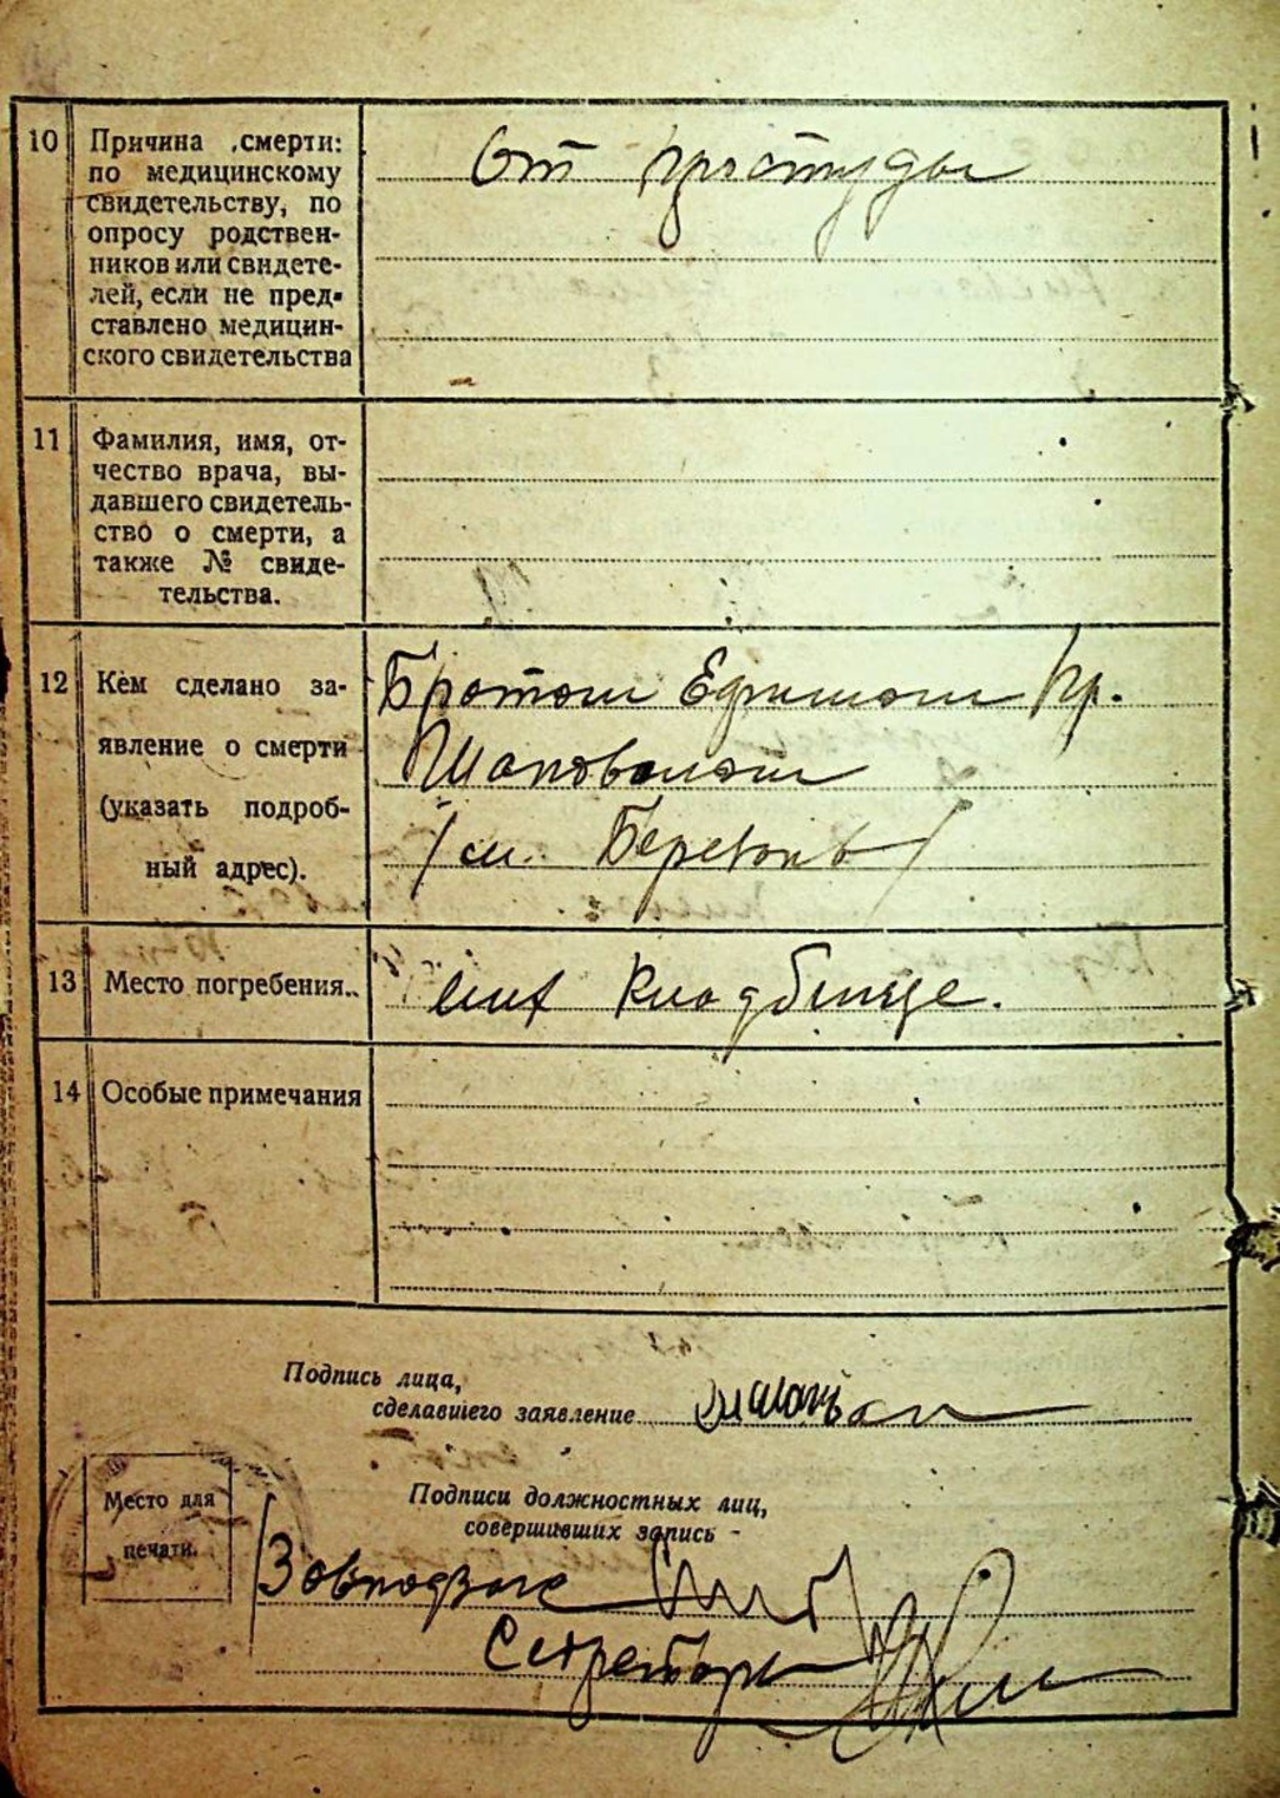 10 Причина смерти:
по медицинскому
свидетельству, по
опросу родствен-
ников или свидете-
лей, если не пред-
ставлено медицин-
ского свидетельства
От простуды
11 Фамилия, имя, от-
чество врача, вы-
давшего свидетель-
ство о смерти, а
также № свиде-
тельства.
12 Кем сделано за-
явление о смерти
(указать подроб-
ный адрес).
Братом Ефимом Гр.
Шаповалом
/см.
13 Место погребения..
кладбище.
14 Особые примечания
Подпись лица,
сделавшего заявление
Подписи должностных лиц,
совершивших запись -
Место для
печати.
Завподзагс
Секретарь